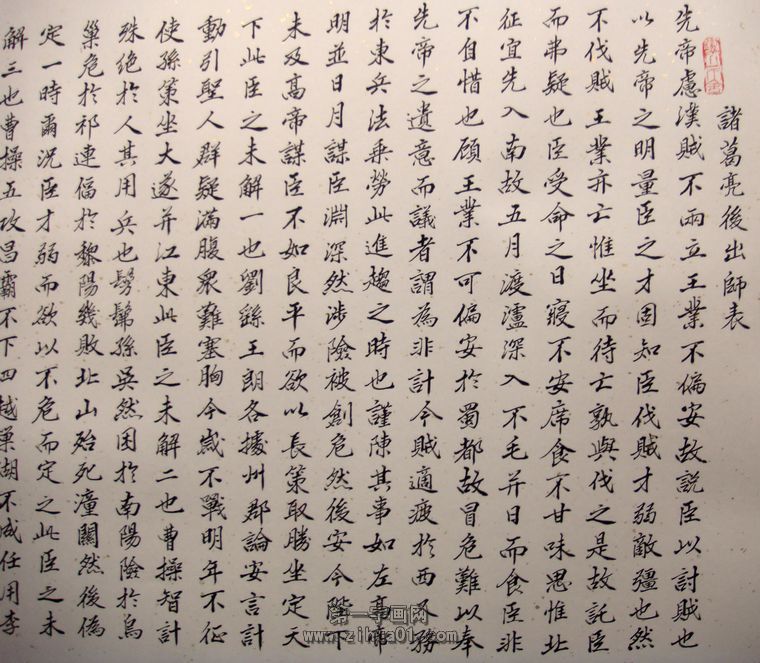 諸葛亮後出師表
先帝慮漢賊不兩立王業不偏安故説臣以討賊也
以先帝之明量臣之才固知臣伐賊才弱敵彊也然
不伐賊王業亦亡惟坐而待亡孰與伐之是故託臣
而弗疑也臣受命之日寢不安席食不甘味思惟北
征宜先入南故五月渡瀘深入不毛并日而食臣非
不自惜也顧王業不可偏安於蜀都故冒危難以奉
先帝之遺意而議者謂為非計今賊適疲於西又務
於東兵法乘勞此進趨之時也謹陳其事如左高帝
明並日月謀臣淵深然涉險被創危然後安今陛下
未及高帝謀臣不如良平而欲以長策取勝坐定天
下此臣之未解一也劉繇王朗各據州郡論安言計
動引聖人群疑滿腹衆難塞胸今歲不戰明年不征
使孫策坐大遂并江東此臣之未解二也曹操智計
殊絕於人其用兵也髣髴孫吳然困於南陽險於烏
巢危於祁連偪於黎陽幾敗北山殆死潼關然後偽
定一時爾況臣才弱而欲以不危而定之此臣之未
解三也曹操五攻昌霸不下四越巢湖不成任用李
第一字画网
www.zihua01.com